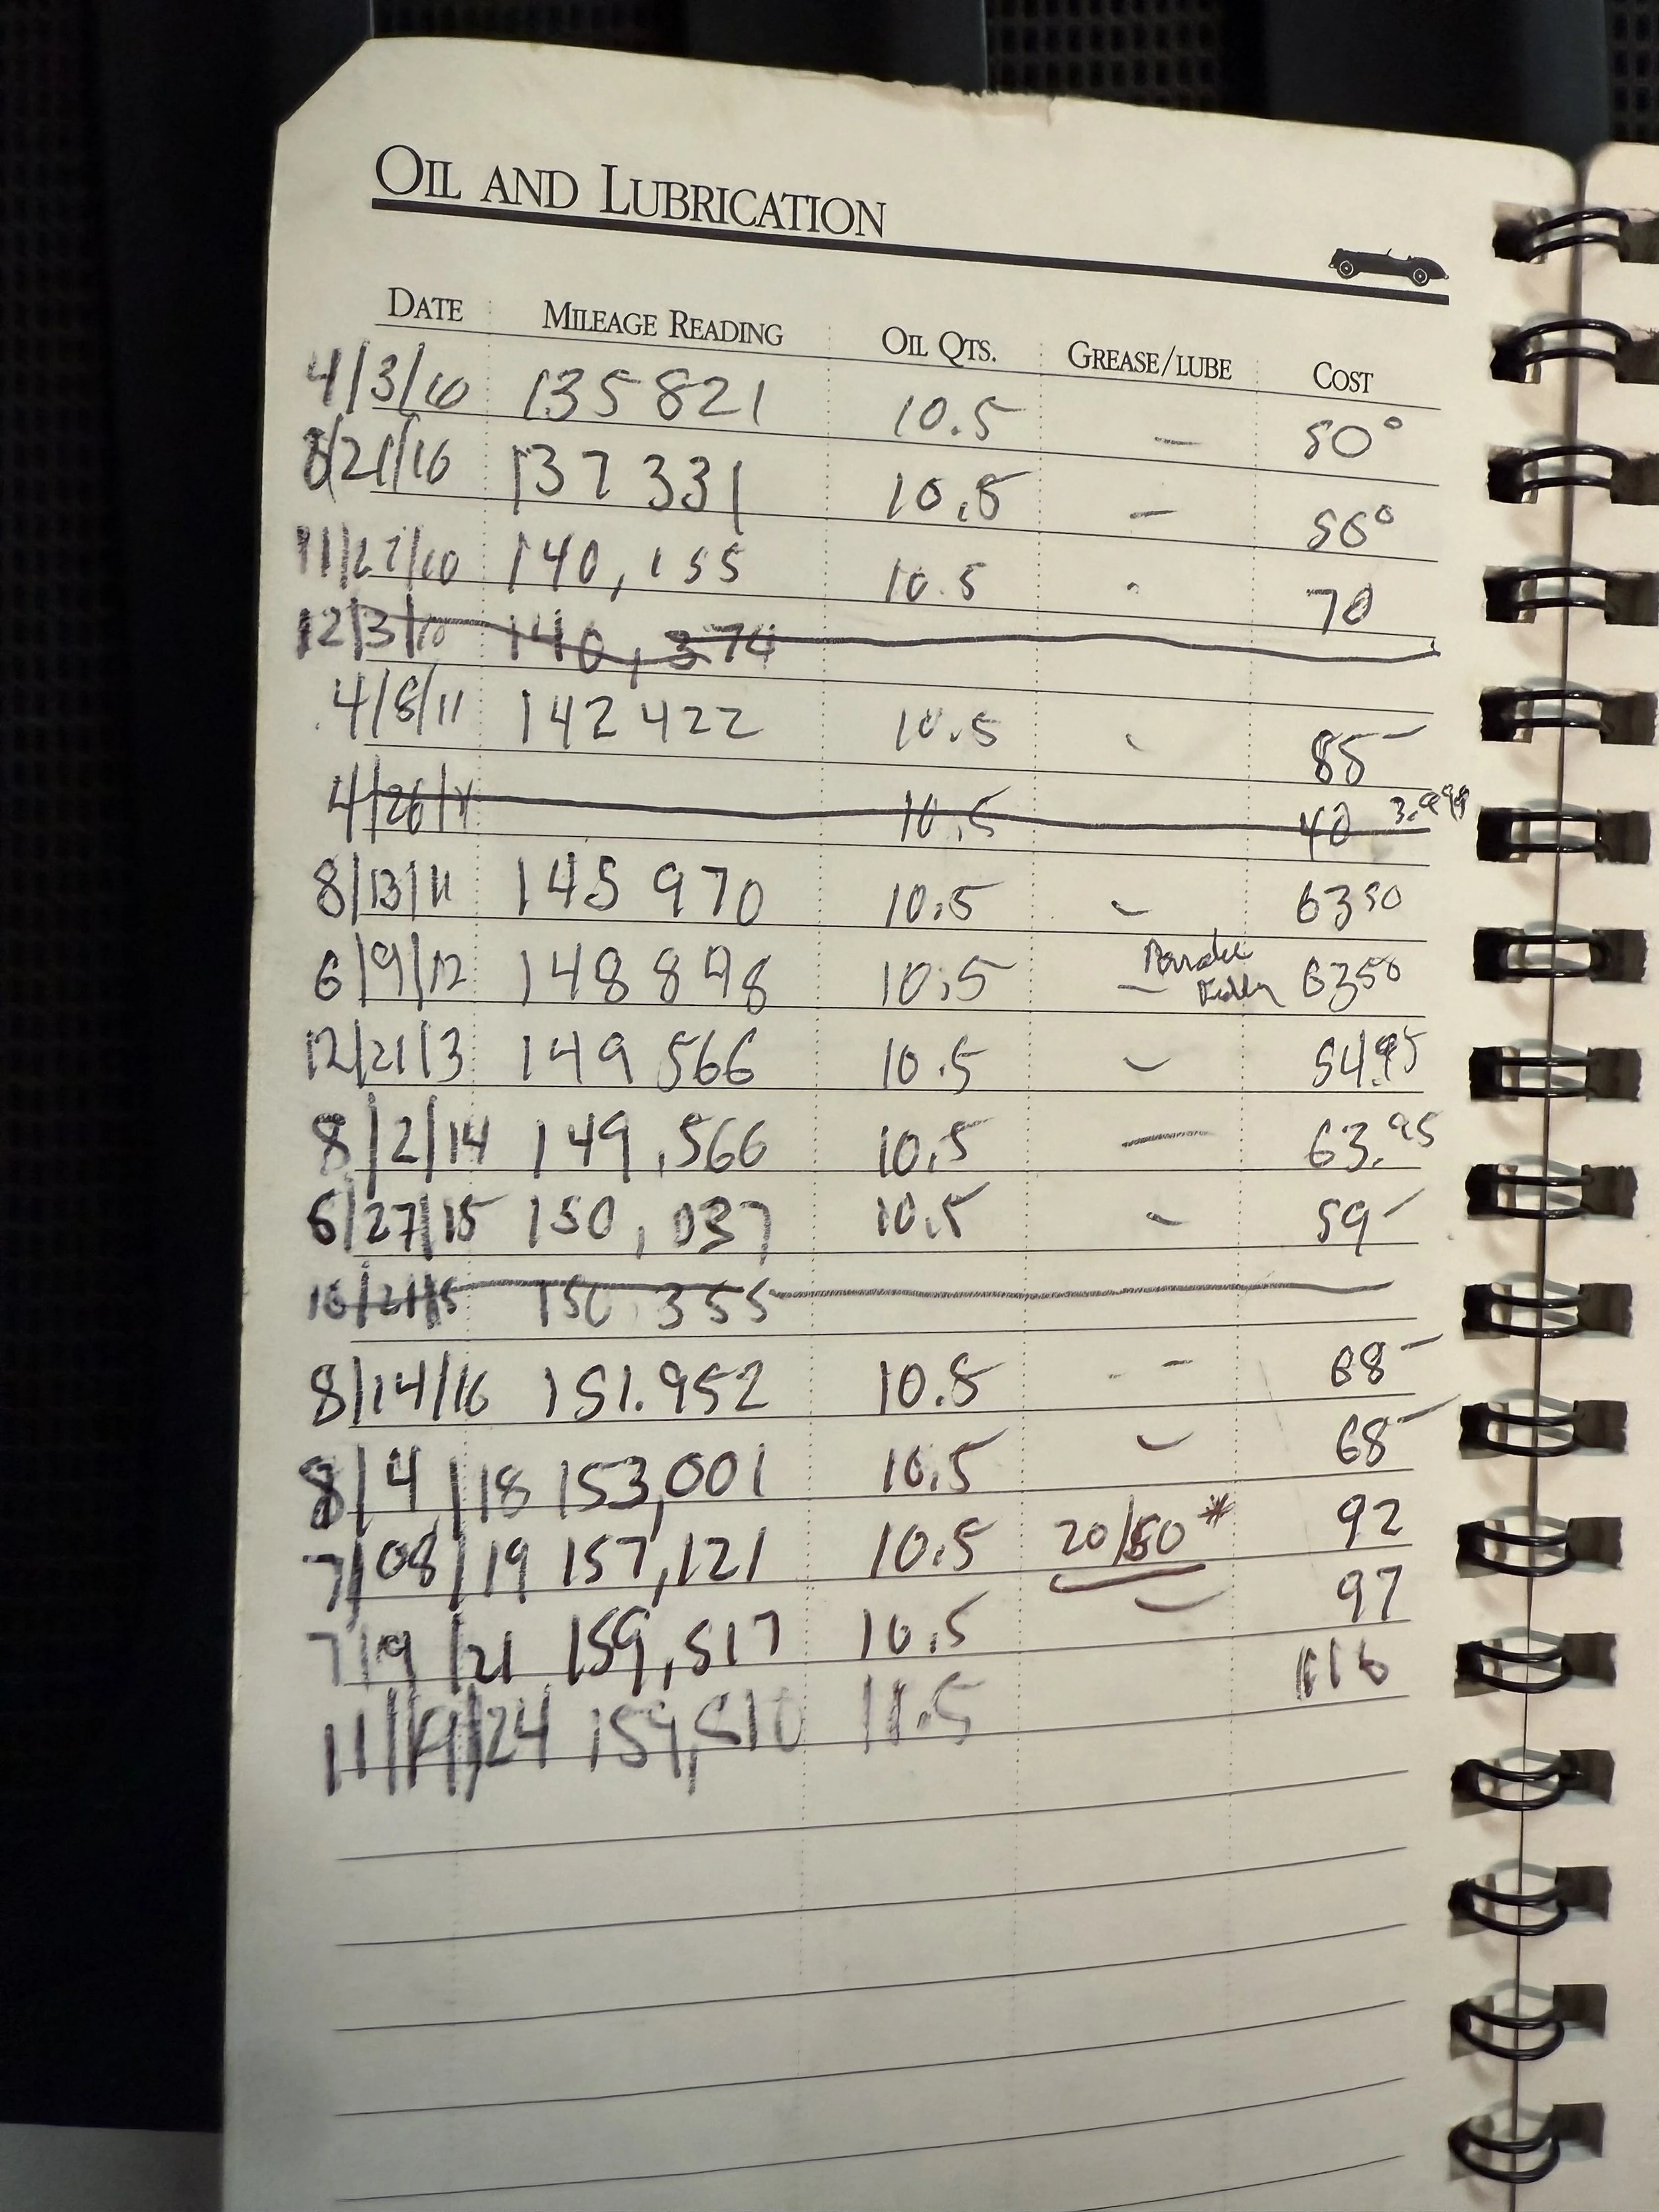 OIL AND LUBRICATION
DATE MILEAGE READING OIL QTS. GREASE/LUBE COST
4/3/10 135821 10.5 – 50°
8/21/10 137 331 10.5 – 50°
11/27/10 140,155 10.5 - 70
12/3/10 140,374
4/8/11 142422 10.5 - 85–
4/26/11 10.5 40
8/13/11 145 970 10.5 – 6350
6/9/12 148 898 10.5 – 6350
12/21/13 149 566 10.5 – 54.95
8/2/14 149,566 10.5 — 63.95
6/27/15 150,037 10.5 – 59–
10/21/15 150 355
8/14/16 151.952 10.5 - – 68–
8/4/18 153,001 10.5 – 68–
7/08/19 157,121 10.5 20/50* 92
7/19/21 159,517 10.5 – 97
11/19/24 159,510 11.5 116